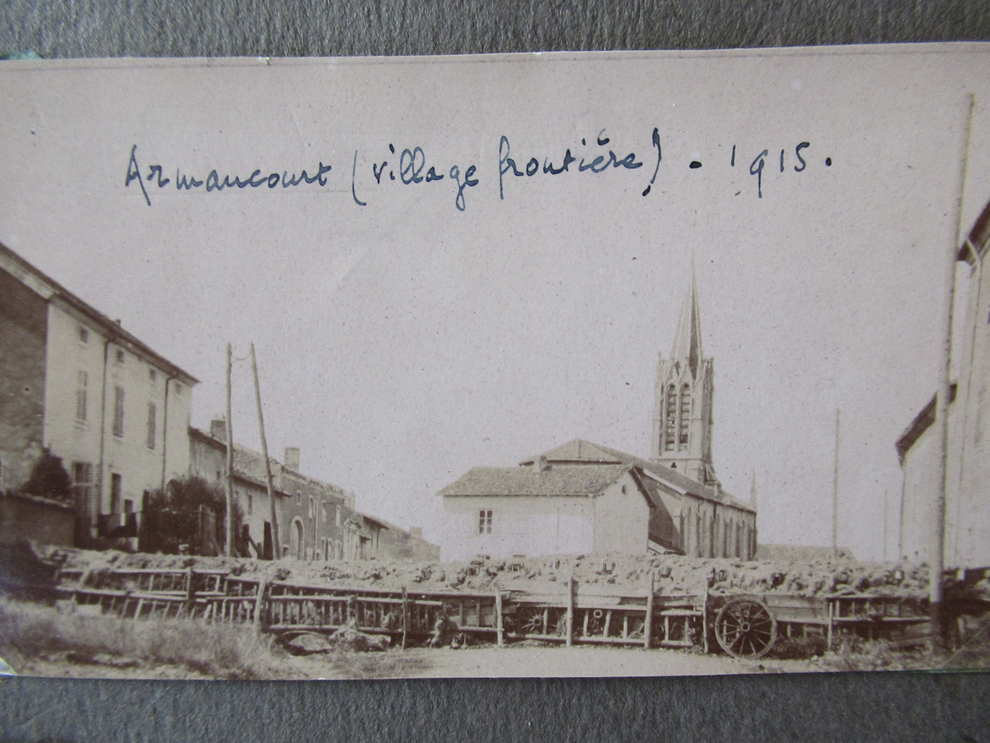 Armaucourt (village frontière). 1915.